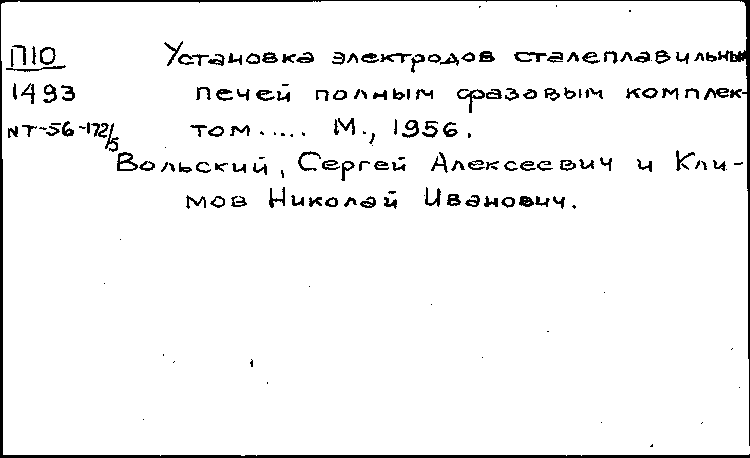 П10 Установка электродов сталеплавильны
1493 печей полным фазовым комплек-
NT-56-172/5 том..... М., 1956.
Вольский, Сергей Алексеевич и Кли-
мов Николай Иванович.